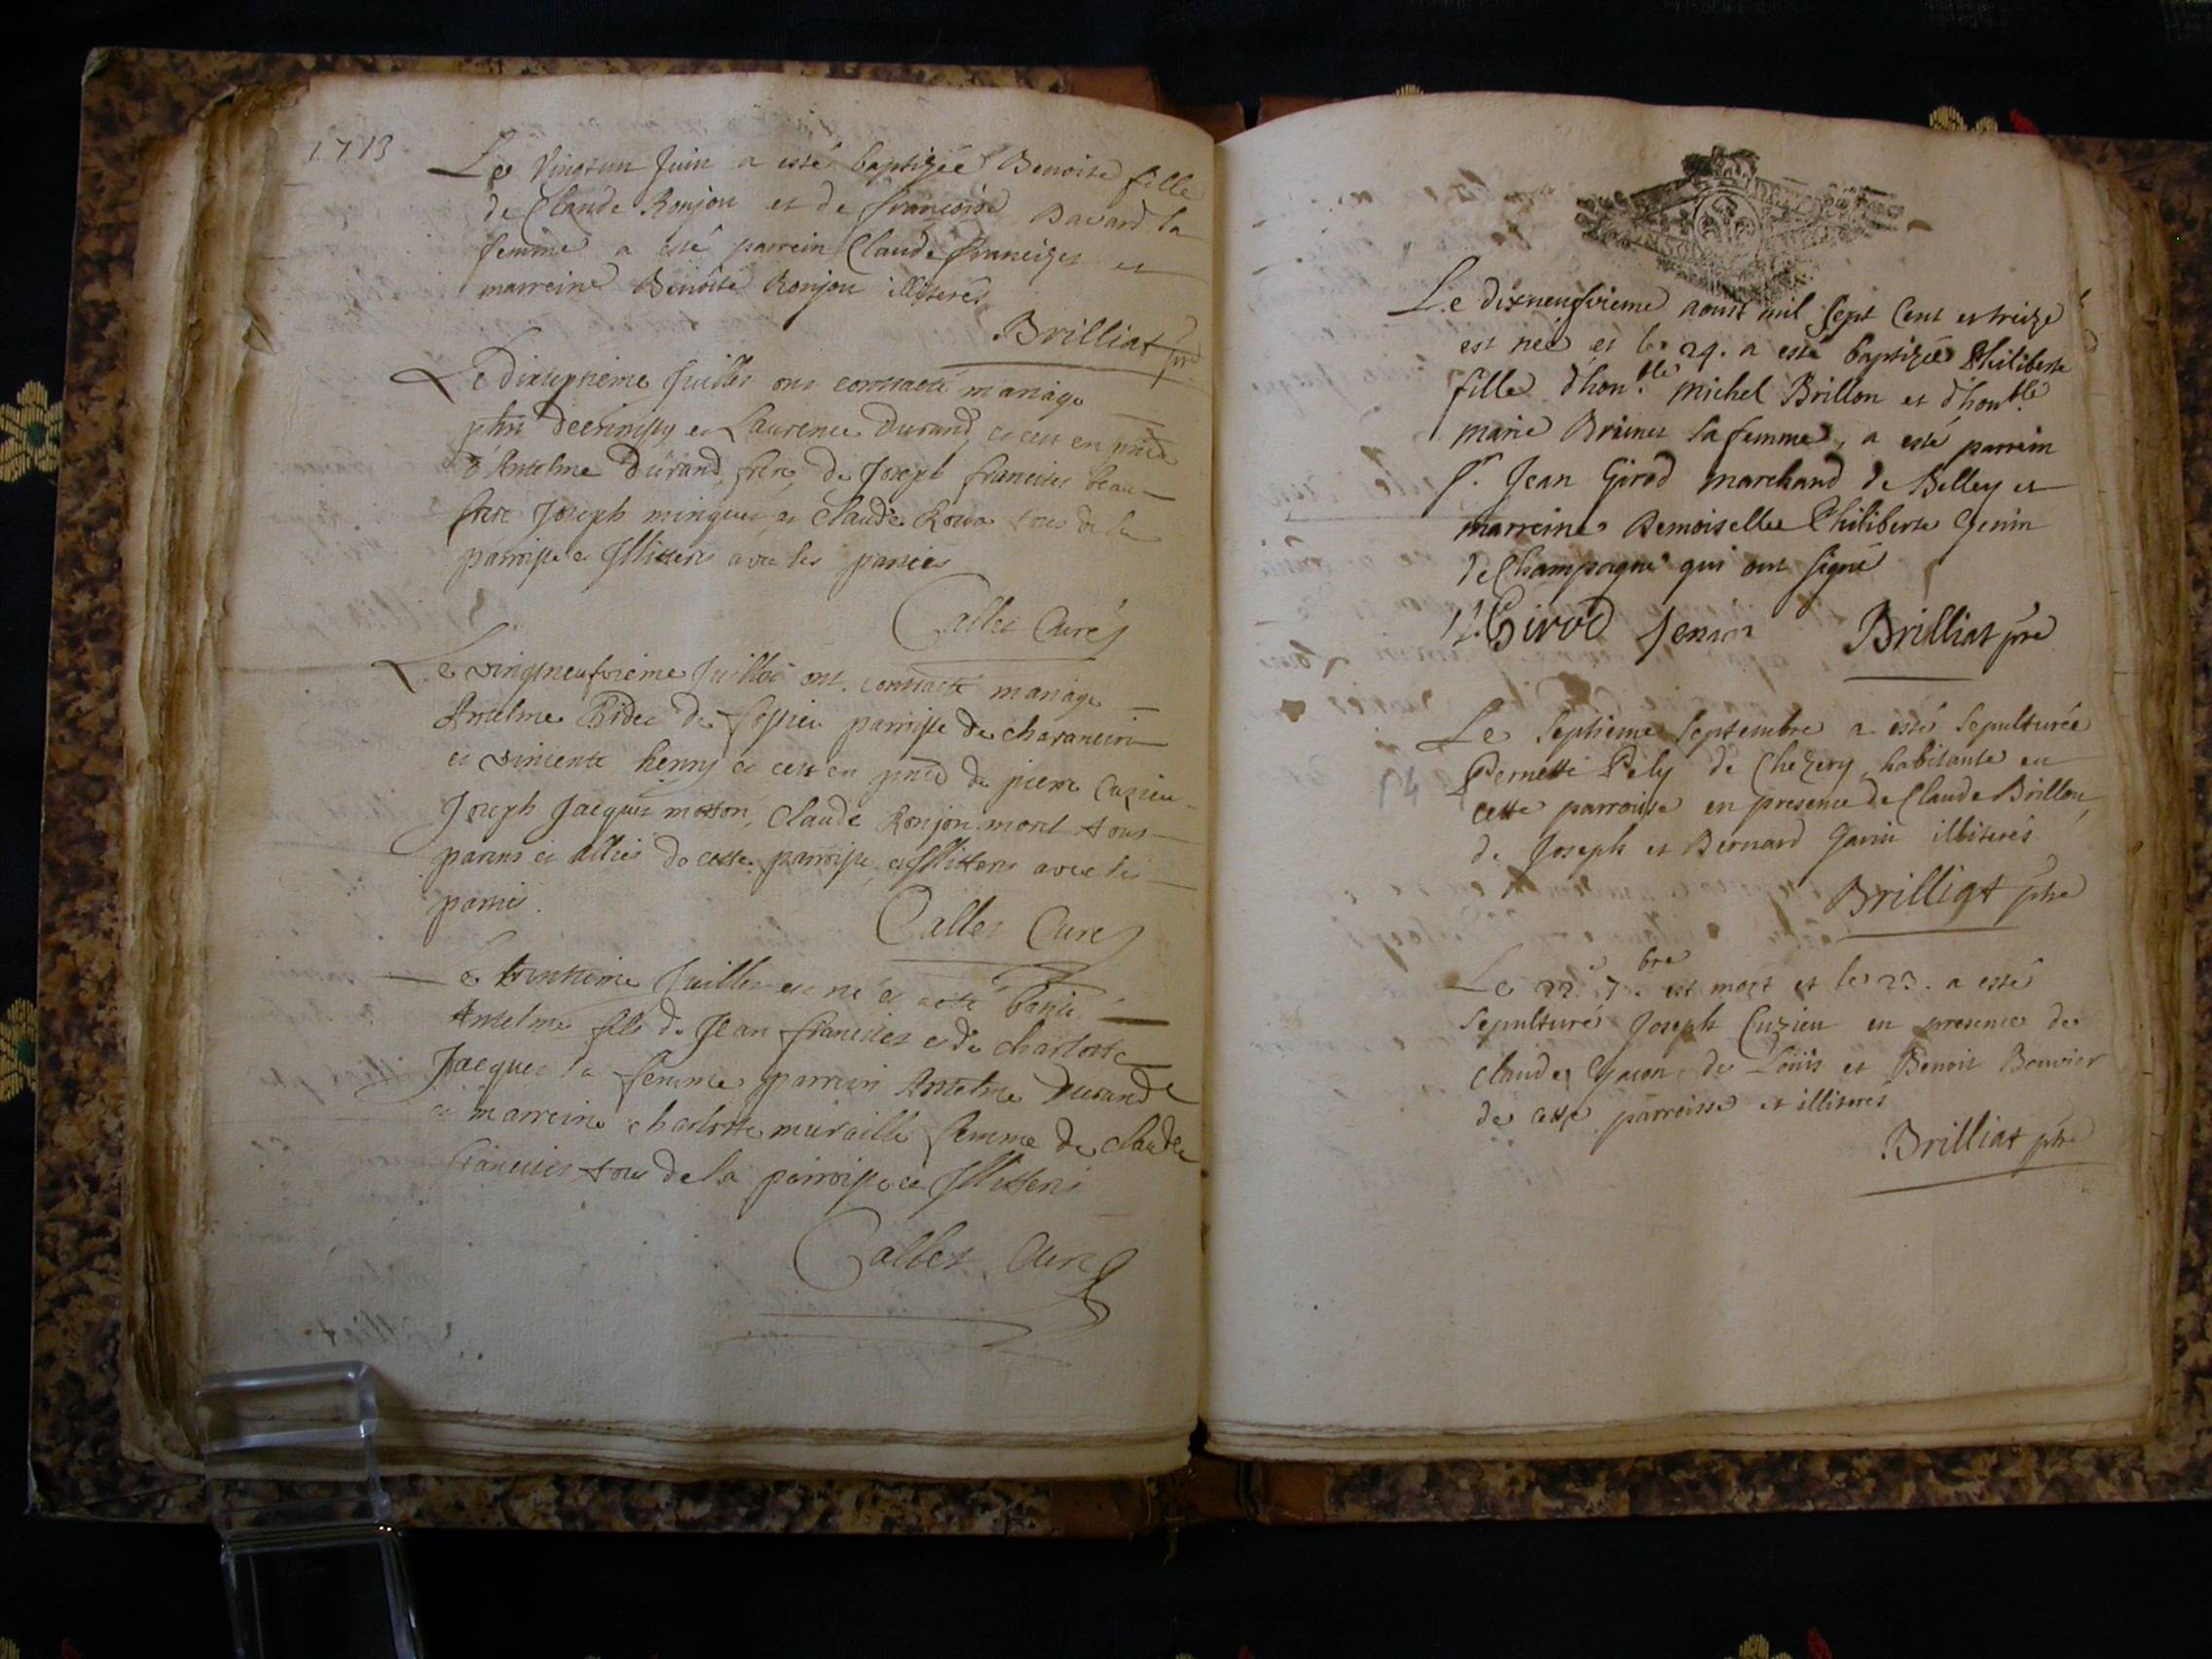 1713
Le vingtun Juin a esté baptizée Benoite fille
de Claude Ronjon et de francoise Bavard sa
femme a esté parrein Claude francizet et
marreine Benoite Ronjon illiterés
Brilliat pre
Le Dixseptieme Juillet ont contracté mariage
et Laurence Durand, et ce en pnce
d'Anselme Durand frere, de Joseph francises beau
frere Joseph minguet et Claude tous de la
parroisse et Illitteris avec les parties
Callet Curé
Le vingtneufvieme Juillet ont contracté mariage
Anselme Bidet de Cessieu parroisse de
et henry et ce en pnce de pierre Cuzieu
Joseph Jacquet motton, Claude Ronjon morel tous
parens et alliés de cette parroisse et Illitteris avec les
parties.
Callet Curé
Le trentieme Juillet est né et a esté Baptisé
Anselme fils de Jean francises et de charlotte
Jacquet sa femme parrein Anselme Durand
et marreine charlotte muraille femme de claude
francises tous de la parroisse et Illitteris
Callet Curé
Le dixneufvieme aoust mil sept Cent et treize
est née et le 24. a esté baptizée Philiberte
fille d'hon.ble Michel Brillon et d'hon.ble
marie Brunet sa femme, a esté parrein
Sr. Jean Girod marchand de Belley et
marreine Demoiselle Philiberte Genin
de Champagne qui ont signé
J. Girod Jenin Brilliat pre
Le Septieme Septembre a esté Sepulturée
Pernette Pely de Chezery habitante en
cette parroisse en presence de Claude Brillon,
de Joseph et Bernard Gavin illiterés
Brilliat pbre
Le 22. 7.bre est mort et le 23. a esté
Sepulturé Joseph Cuzieu en presence de
Claude Gacon de Louis et Benoit Bouvier
de cette parroisse et illiterés
Brilliat pbre